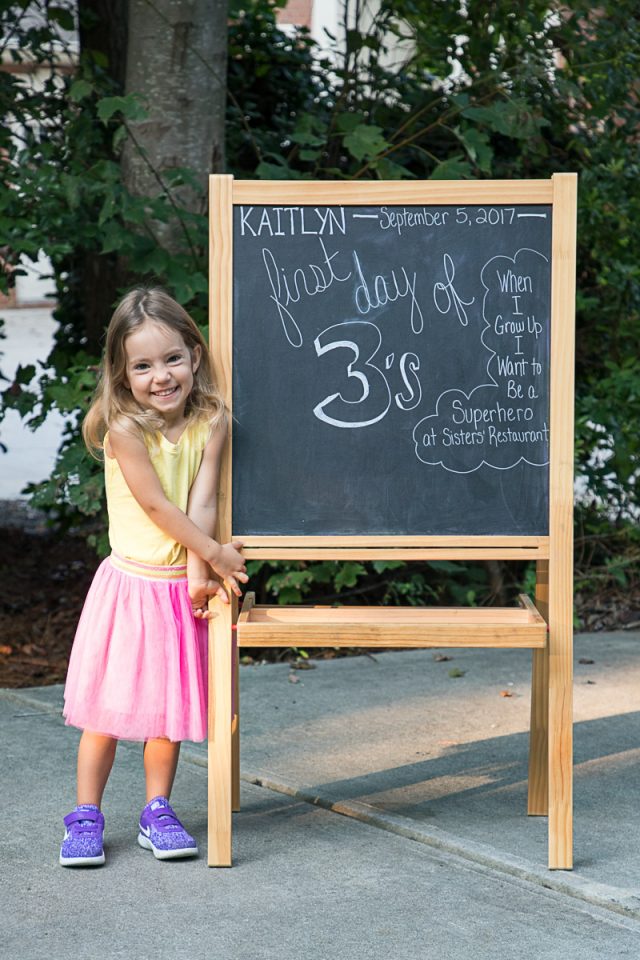 KAITLYN — September 5, 2017 —
first day of
3's
When
I
Grow Up
I
Want to
Be a
Superhero
at Sisters' Restaurant